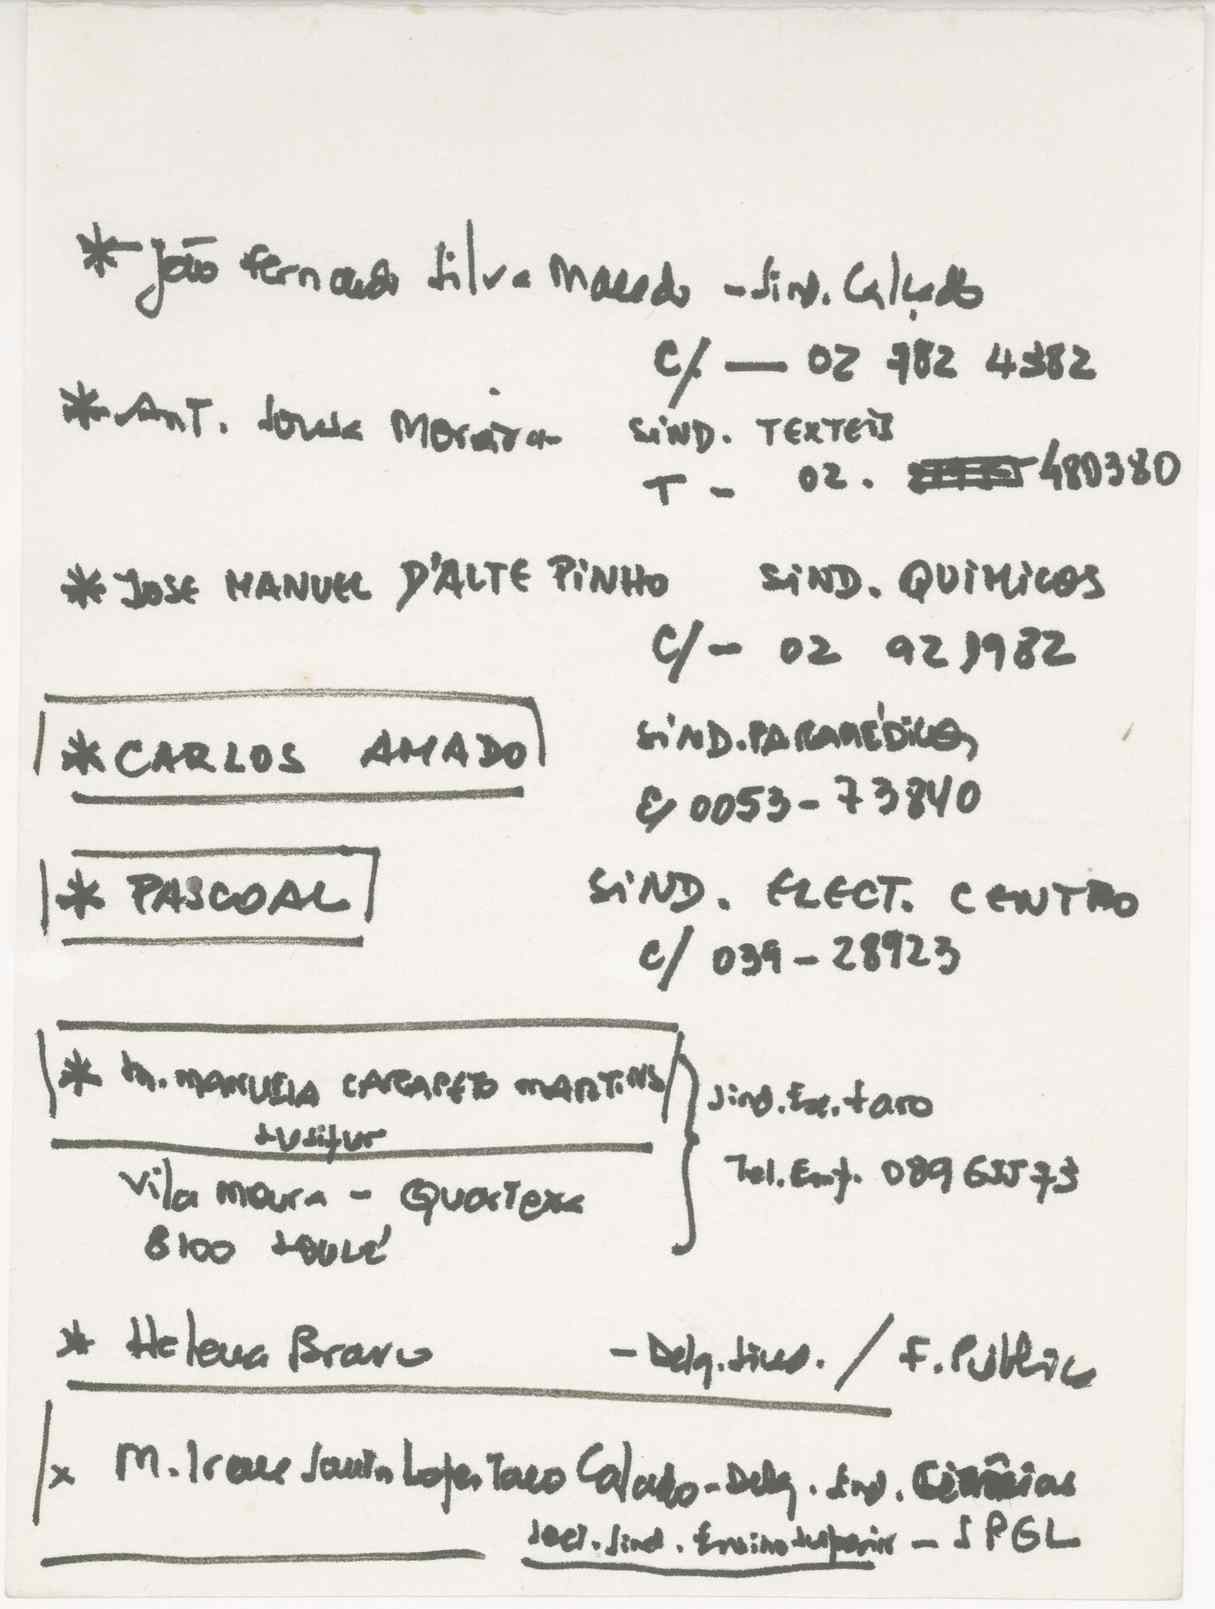 * João Fernando Silva Macedo - Sind. Calçado
C/ — 02 982 4382
* ANT. Sousa Moreira SIND. TEXTEIS
T - 02. 480380
* JOSE MANUEL D'ALTE PINHO SIND. QUIMICOS
C/ - 02 921982
* CARLOS AMADO SIND. PARAMÉDICOS
C/ 0053 - 73840
* PASCOAL SIND. ELECT. CENTRO
C/ 039 - 28923
* M. MANUELA CARAPETO MARTINS
Sind. Esc. Faro
Lusitur
Tel. Emp. 089 65573
Vila Moura - Quarteira
8100 LOULÉ
* Helena Bravo - Delg. Sind. / F. Pública
x M. Irene Lopes Calado - Delg. Sind. Ciências
Sect. Sind. Ensino Superior - SPGL